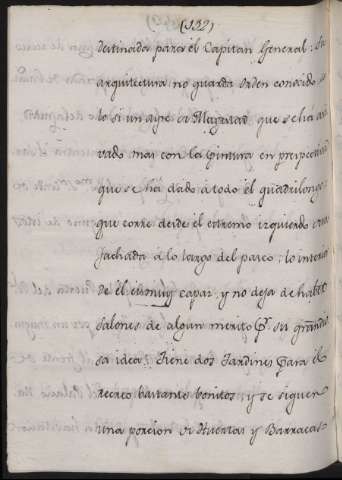 (132)
destinada para el Capitan General: Su
arquitectura no guarda orden conocido so
lo si un ayre de Magestad que se há avi
vado mas con la pintura en prespectiva
que se ha dado á todo el quadrilongo
que corre desde el estremo izquierdo
fachada á lo largo del paseo; lo interior
de él es muy capaz y no deja de haber
salones de algun merito p.r su grandio
sa idea; Tiene dos Jardines para el
recreo bastante bonitos, y se siguen
una porcion de Huertas y Barracas